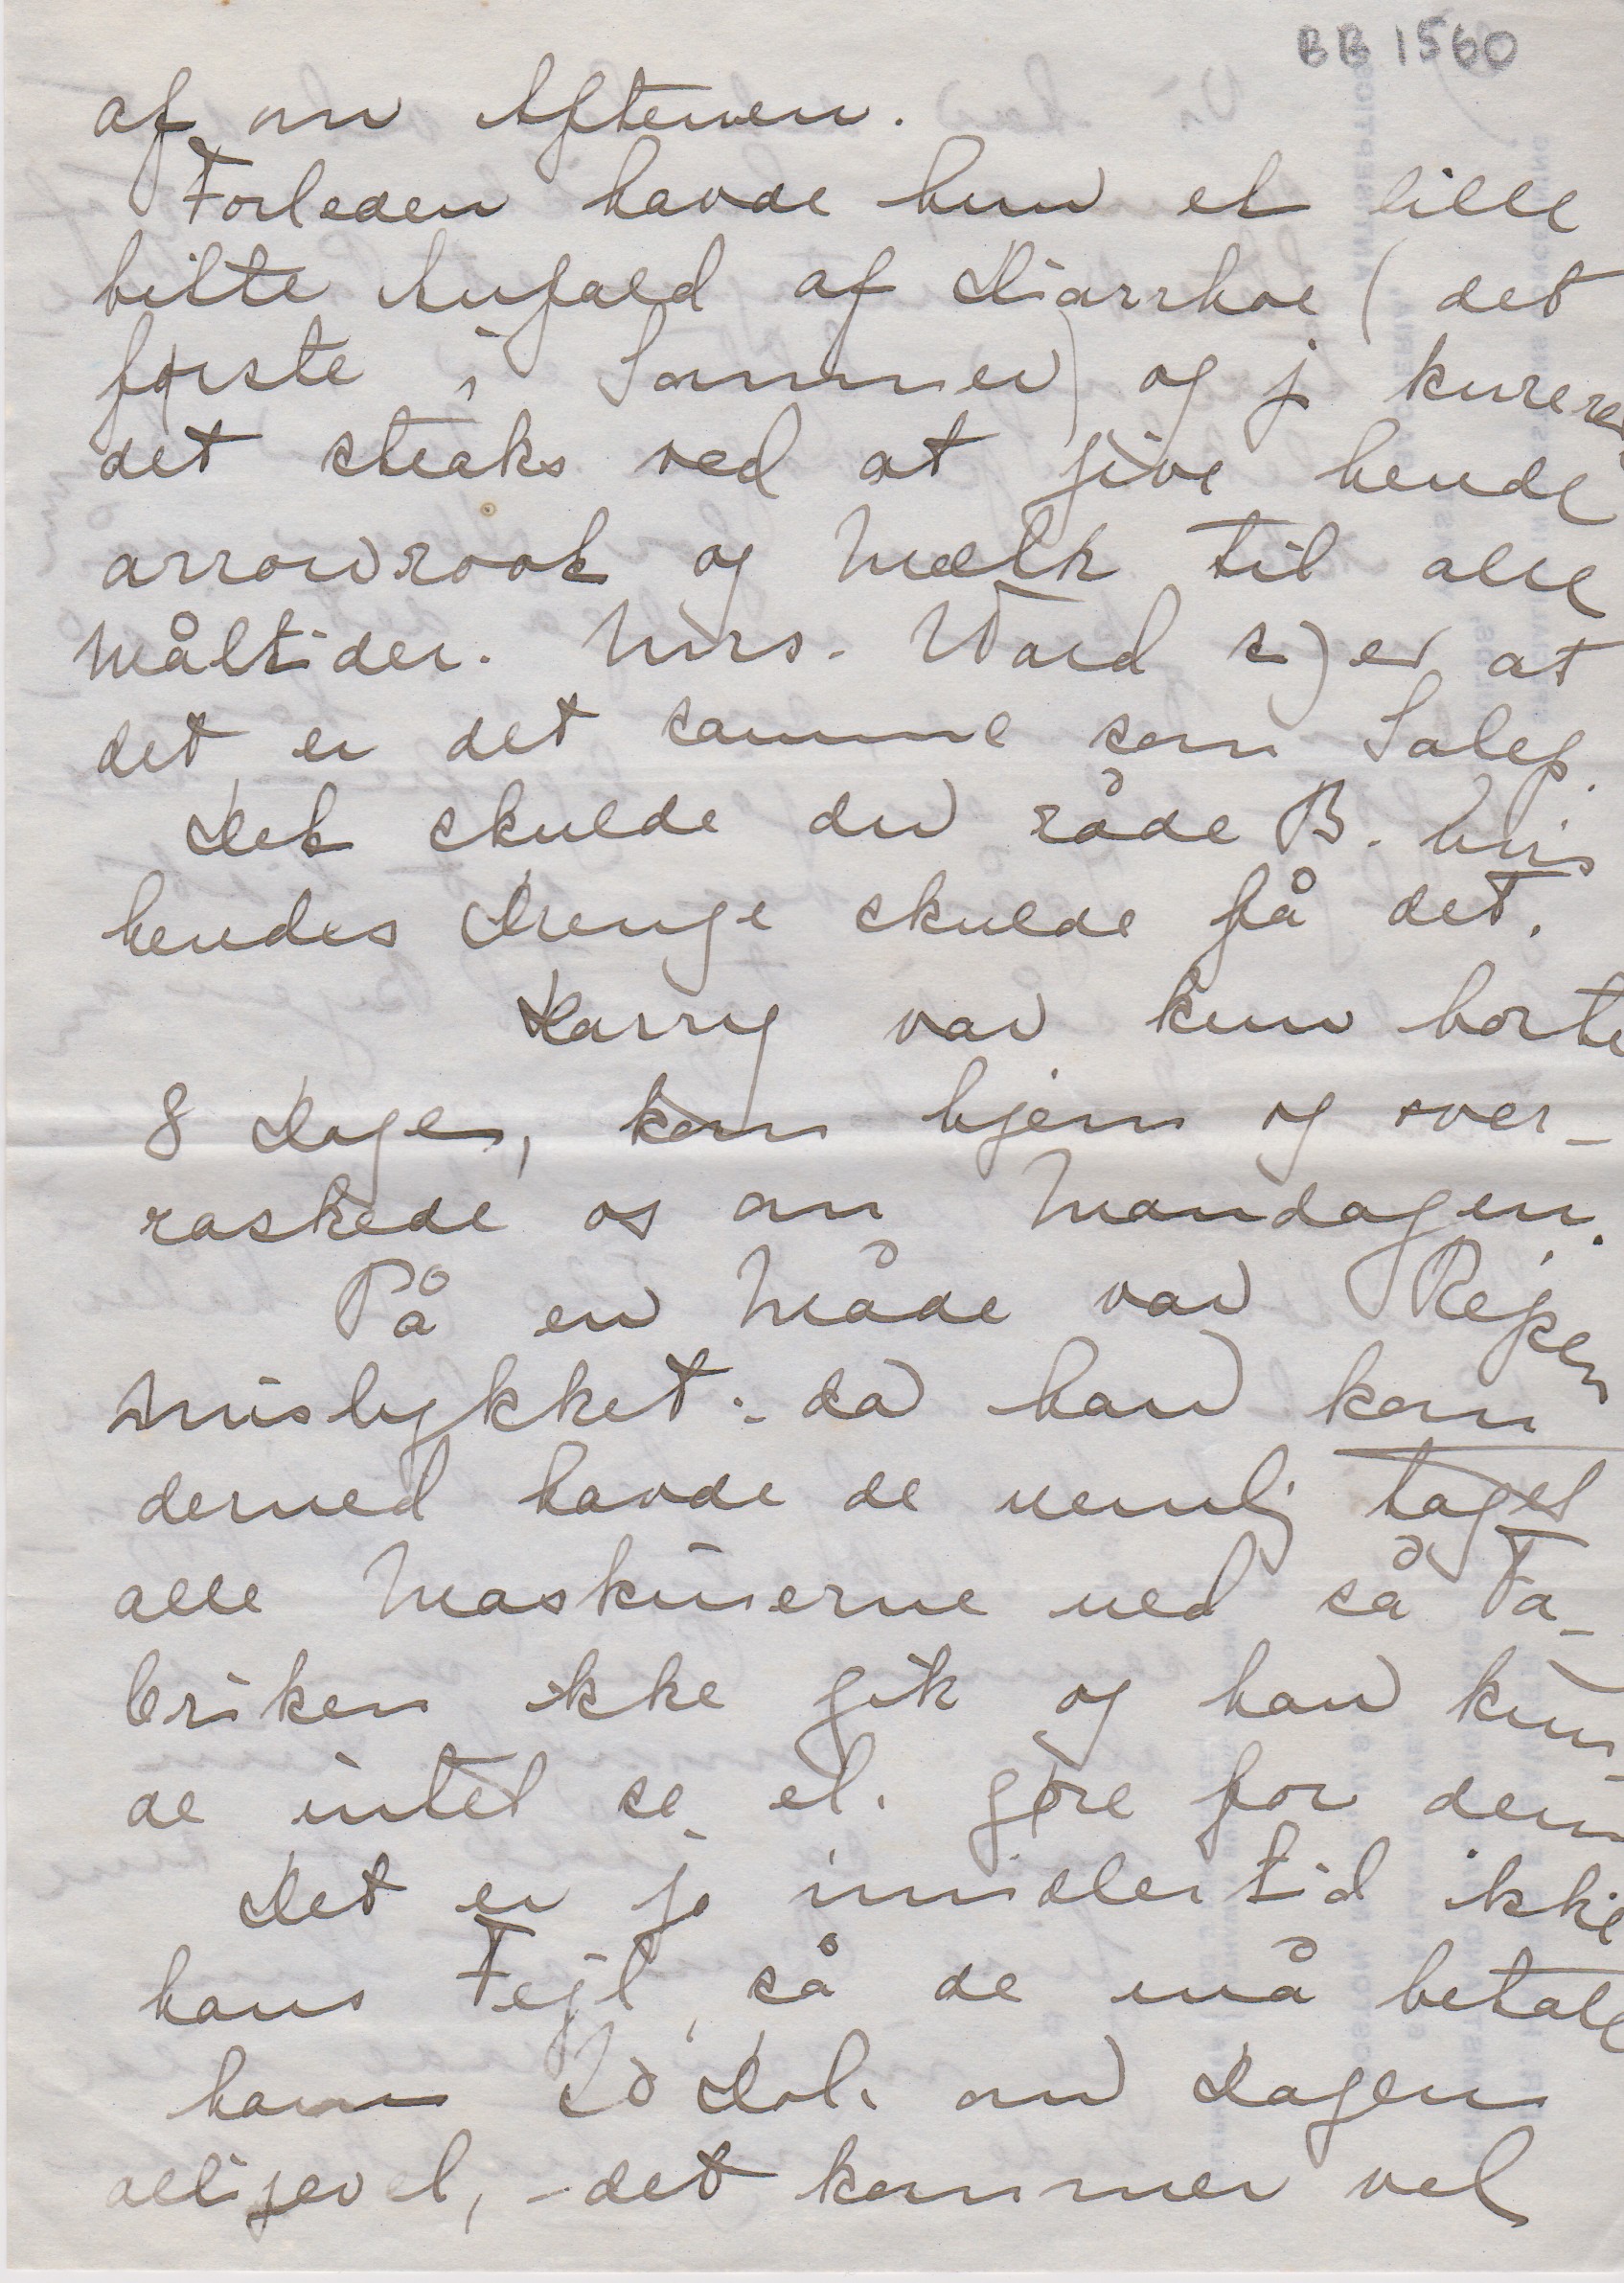 BB 1560
af om Aftenen.
Forleden havde hun et lille
bitte Anfald af Diarrhoe (det
første i Sommer) og j kurered
det straks ved at give hende
arrowroot og Mælk til alle
Måltider. Mrs. Ward s) er at
det er det samme som Salep.
Det skulde du råde B. hvis
hendes Drenge skulde få det.
Harry var kun borte
8 Dage, kom hjem og over-
raskede os om Mandagen.
På en Måde var Rejsen
mislykket: da han kom
derned havde de nemlig taget
alle Maskinerne ned så Fa-
briken ikke gik og han kun-
de intet se el. gøre for dem
Det er jo imidlertid ikke
hans Fejl, så de må betale
ham Dol. om Dagen
alligevel, - det kommer vel